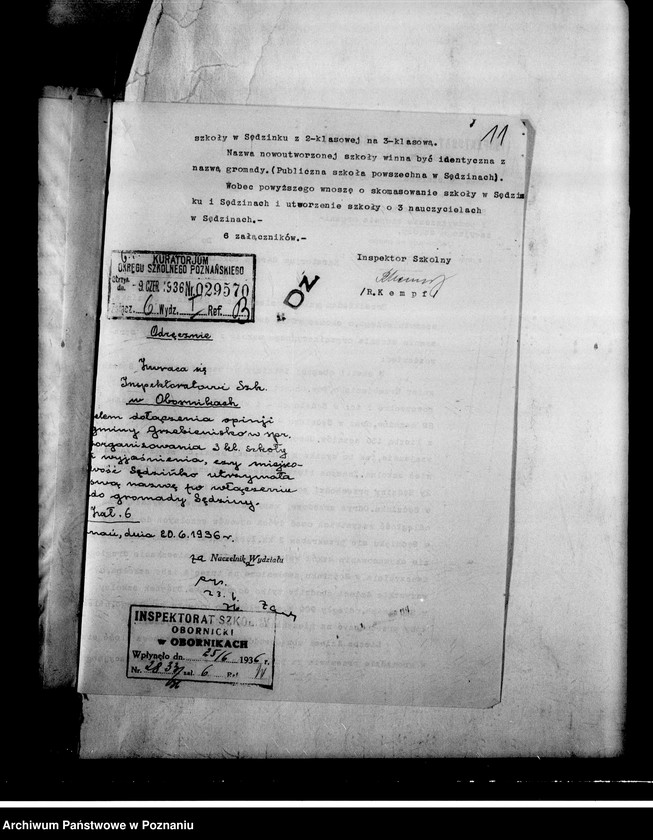 11
szkoły w Sędzinku z 2-klasowej na 3-klasową.
Nazwa nowoutworzonej szkoły winna być identyczna z
nazwą gromady.(Publiczna szkoła powszechna w Sędzinach).
Wobec powyższego wnoszę o skomasowanie szkoły w Sędzin
ku i Sędzinach i utworzenie szkoły o 3 nauczycielach
w Sędzinach.-
6 załączników.-
Inspektor Szkolny
/R.Kempf/
KURATORJUM
OKRĘGU SZKOLNEGO POZNAŃSKIEGO
Otrzym. dn. - 9. CZER. 1936 Nr 029570
Załącz. 6 Wydz. I Ref. B
DZ
Odręcznie
Zwraca się
Inspektoratowi Szk.
w Obornikach
elem dołączenia opinji
gminy Grzebienisko w spr.
organizowania 3 kl. szkoły
i wyjaśnienia, czy miejsco-
wość Sędzinko utrzymała
swą nazwę po włączeniu
do gromady Sędziny.
Zał. 6
nań, dnia 20.6.1936 r.
za Naczelnik Wydziału
23.6.
INSPEKTORAT SZKOLNY
OBORNICKI
w OBORNIKACH
Wpłynęło dn. 25/6 1936 r.
Nr. 2833/ zał. 6
Archiwum Państwowe w Poznaniu